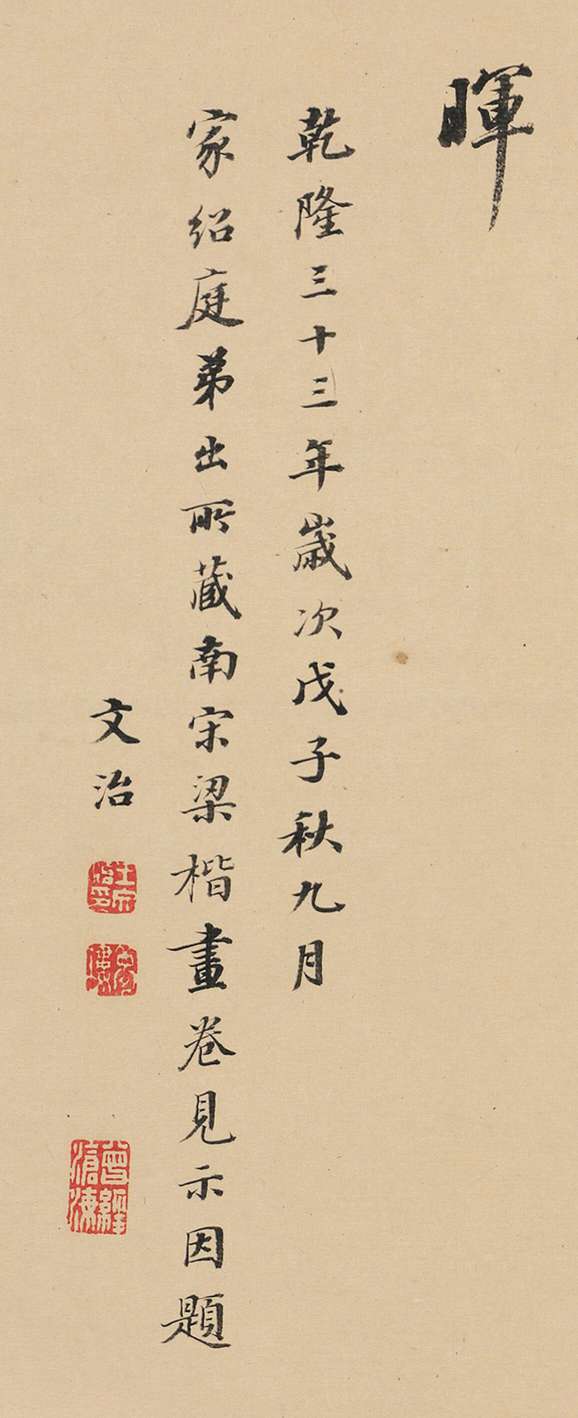 暉
乾隆三十三年歲次戊子秋九月
家紹庭弟出所藏南宋梁楷畫卷見示因題
文治
曾經滄海